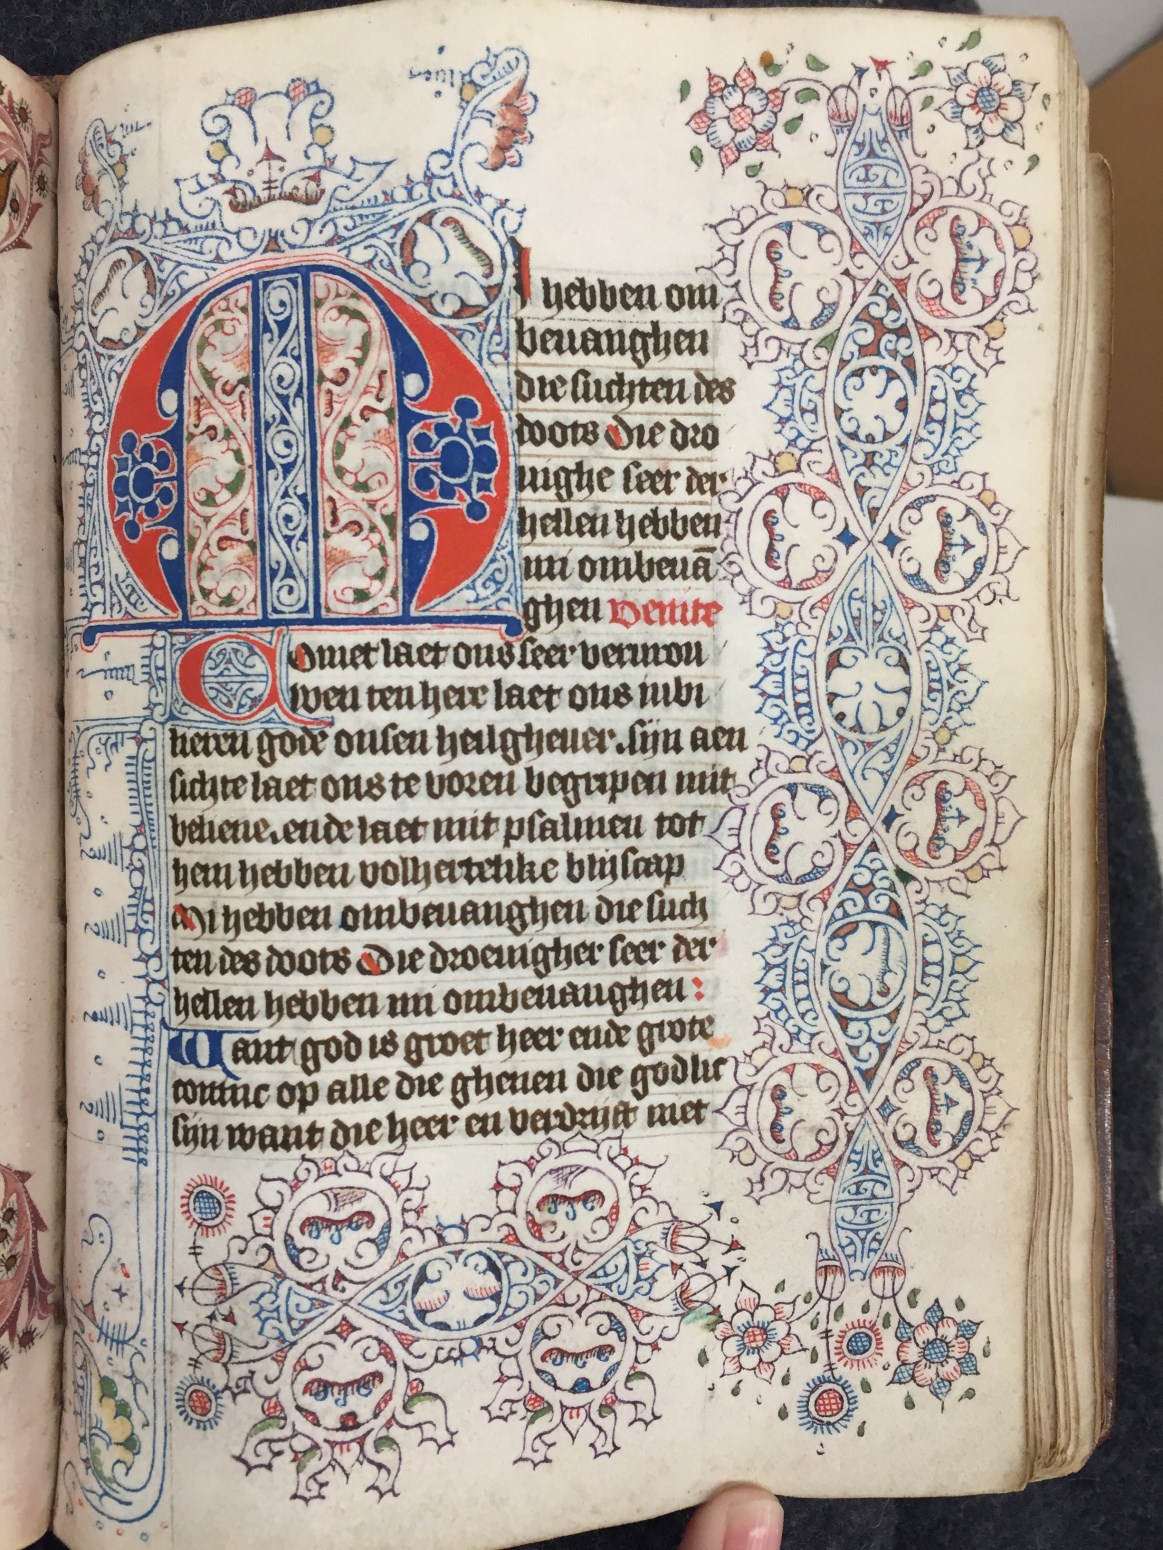 MI hebben om
beuanghen
die suchten des
doots Die dro
uighe seer der
hellen hebben
mi ombeuā
ghen Venite
Comet laet ons seer vermrou
wen ten here laet ons iubi
lieren gode onsen heilgheuer. sijn aen
sichte laet ons te voren begripen mit
beliene. ende laet mit psalmen tot
hem hebben volhertelike blijscap
Mi hebben ombeuanghen die such
ten des doots Die droeuigher seer der
hellen hebben mi ombeuanghen :
Want god is groet heer ende grote
coninc op alle die ghenen die godlic
sijn want die heer en verdrijft niet